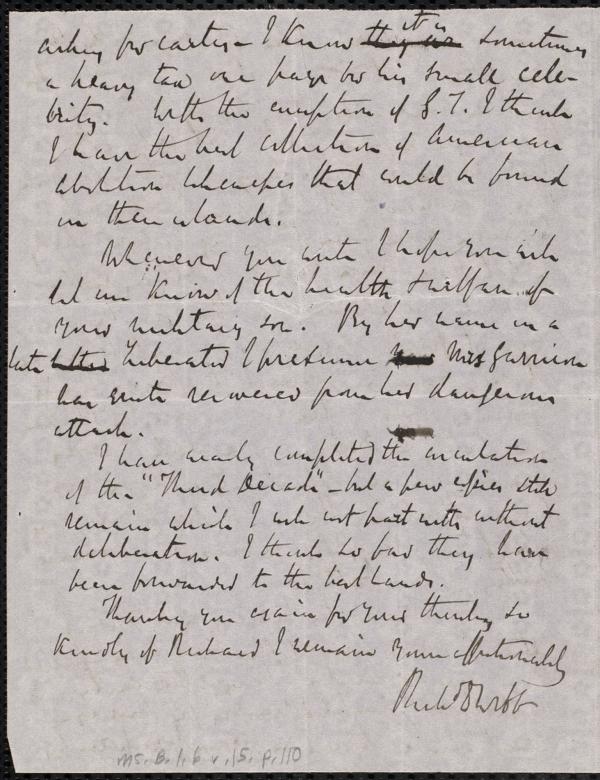 asking for cartes - I know they are it is sometimes
a heavy tax one pays for his small cele-
brity. With the exception of G. T. I think
I have the best collection of American
abolition likenesses that could be found
in these islands.
Whenever you write I hope you will
let me know of the health & welfare of
your military son. By her name in a
late Liberator I presume Mrs Garrison
has quite recovered from her dangerous
attack.
I have nearly completed the circulation
of the "Third Decade" - but a few copies still
remain which I will not part with without
deliberation. I think so far they have
been forwarded to the best hands.
Thanking you again for your thinking so
kindly of Richard I remain yours affectionately
Richd D Webb
Ms. B. 1. 6 v. 15. p. 110